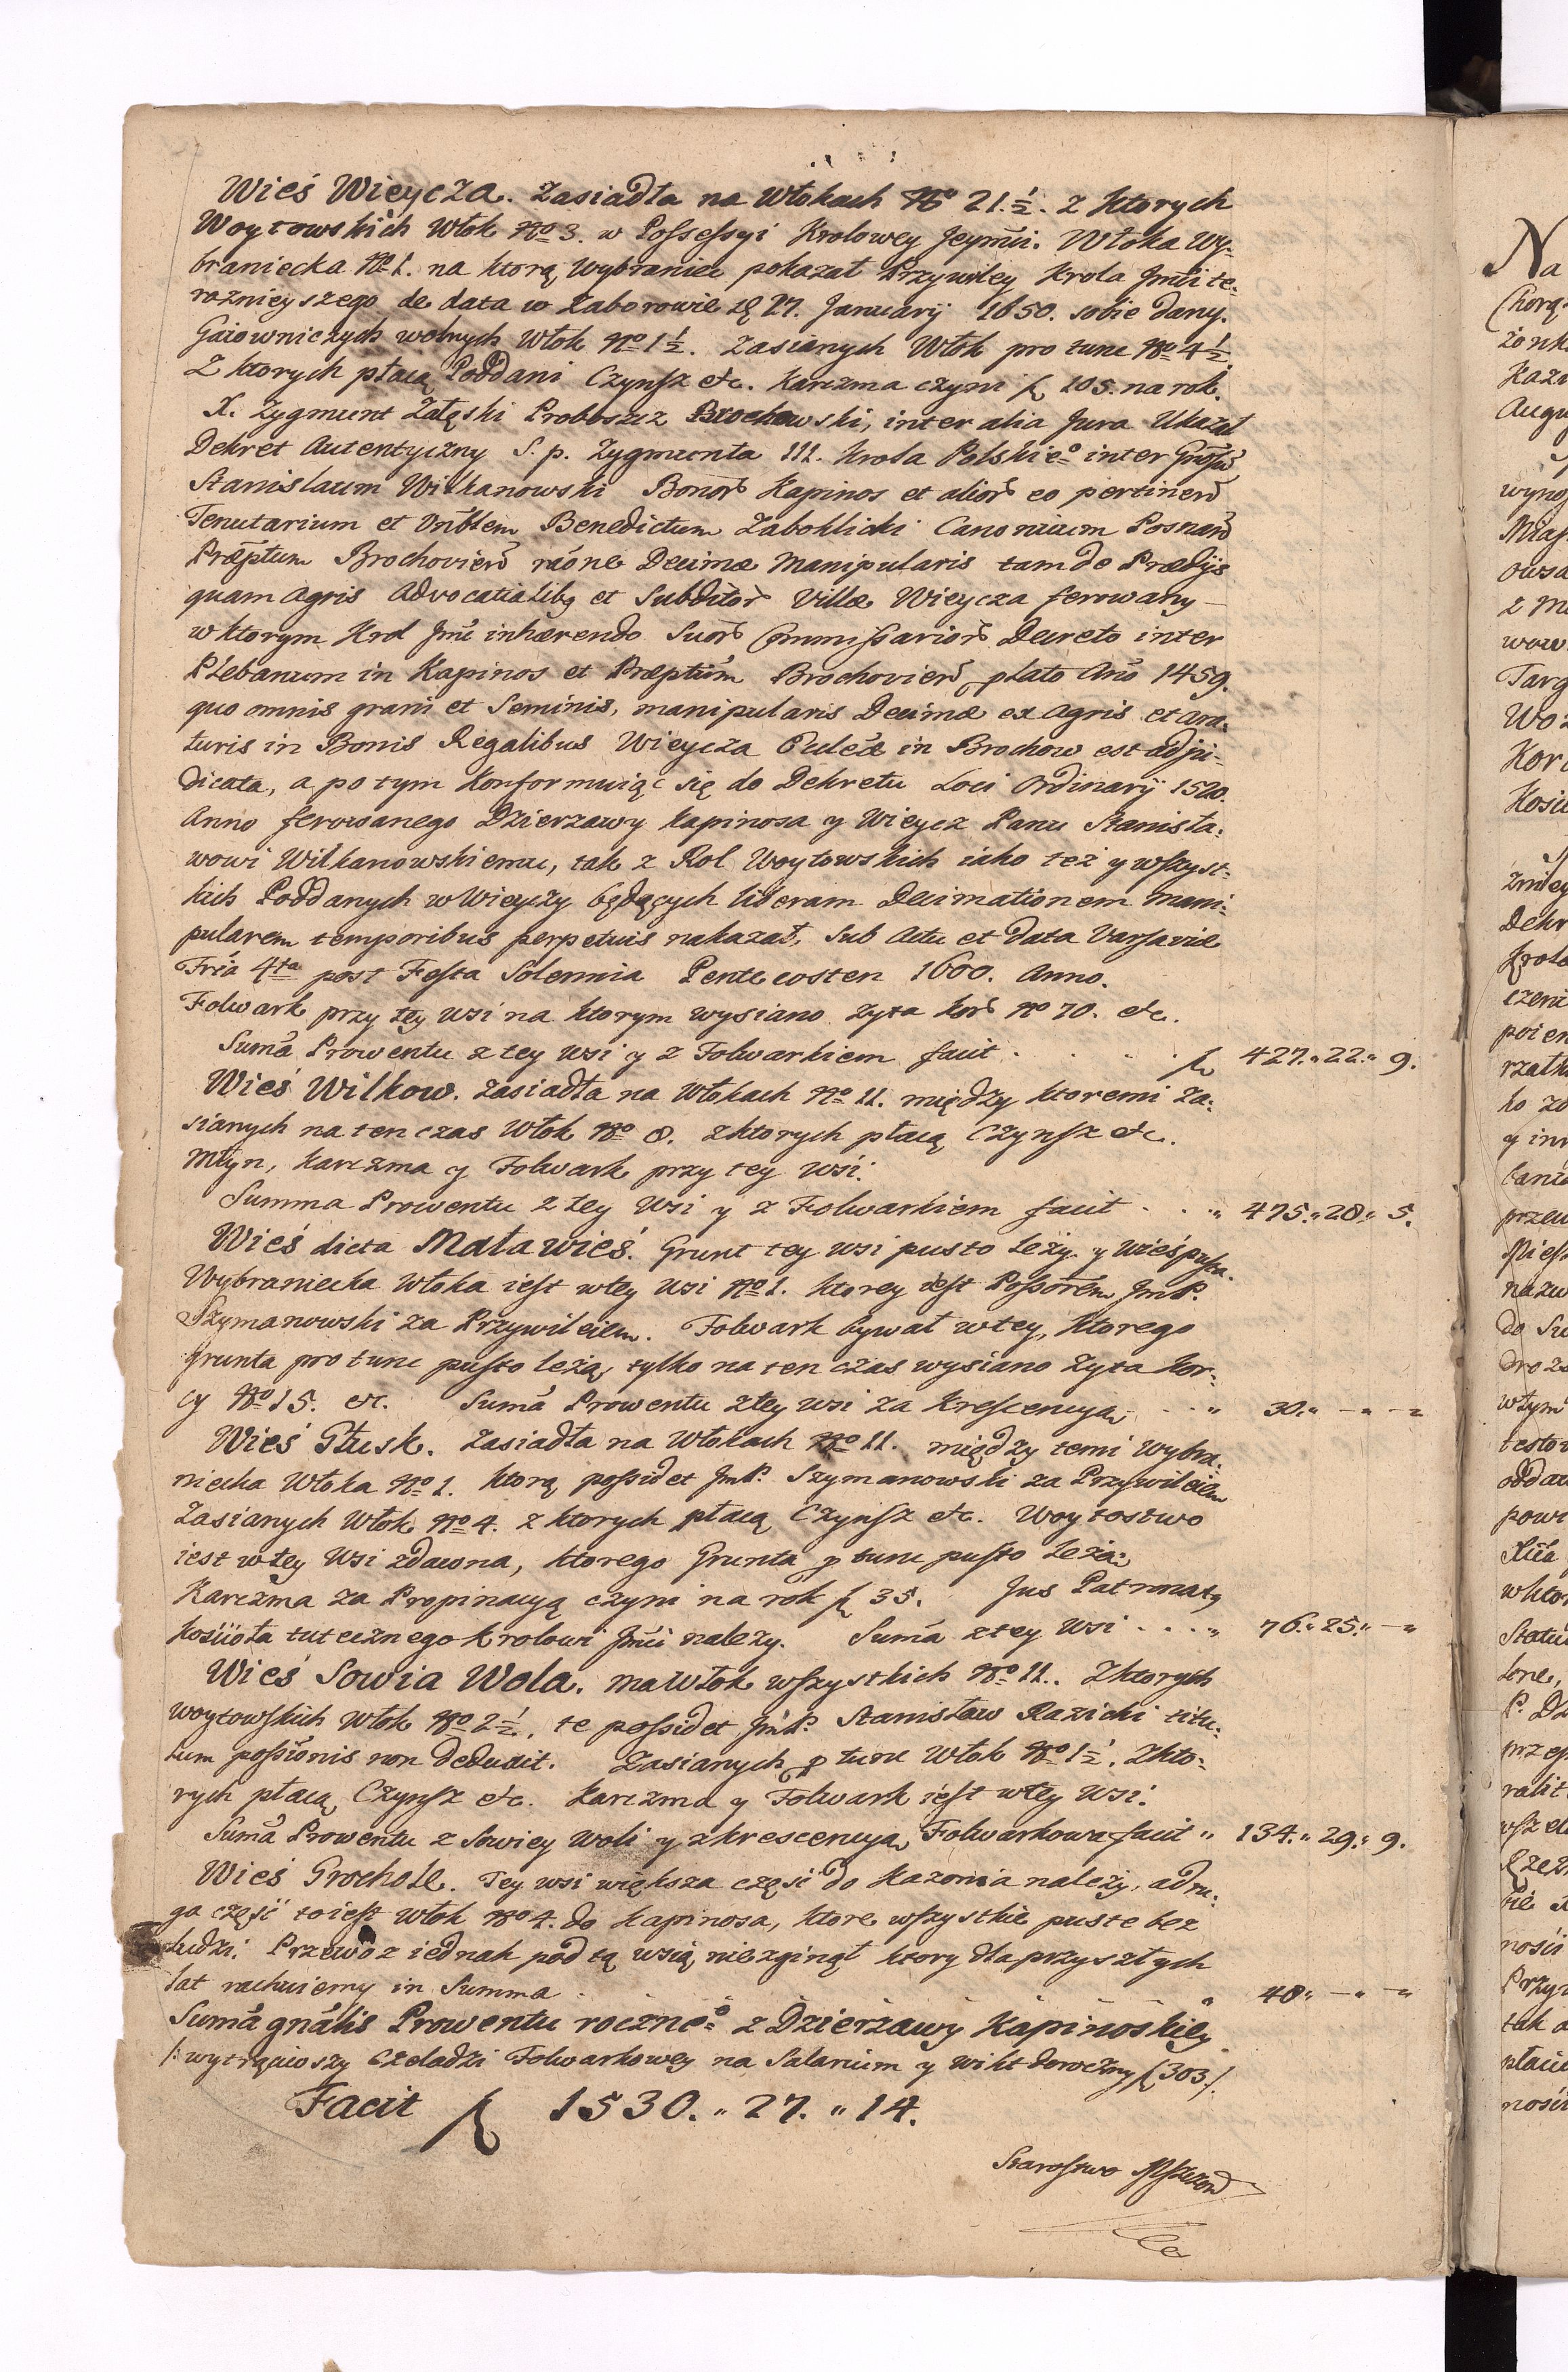 Wieś Wieycza. Zasiadła na Włokach No 21.½. z ktorych
Woytowskich Włok No 3. w Possessyi Krolowey Jeymci. Włoka Wy-
braniecka No 1. na ktorą Wybraniec pokazał Przywiley Krola Jmci te-
raznieyszego de data w Zaborowie 27. January 1650. sobie dany.
Gaiowniczych wolnych Włok No 1½. Zasianych Włok pro tunc No 4½
Z ktorych płacą Poddani Czynsz etc. Karczma czyni f 105. na rok.
X. Zygmunt Załęski Proboszcz Brochowski, inter alia Jura Ukazał
Dekret Autentyczny S. p. Zygmunta III. Krola Polskieo inter
Stanislaum Wilkanowski Bonor Kapinos et alior eo pertinen
Tenutarium et Vnblem Benedictum Zaboklicki Canonicum Posnan
Præptum Brochovien raóne Decimæ Manipularis tam de Prædijs
quam Agris Advocatialibq et Subditor Villæ Wieycza ferowany
w ktorym Krol Jmć inhærendo Suor Commissarior Decreto inter
Plebanum in Kapinos et Præptum Brochovien, plato Ano 1459.
quo omnis grani et Seminis, manipularis Decimæ ex Agris et Ara-
turis in Bonis Regalibus Wieycza Ecclæ in Brochow est adju-
dicata, a po tym Konformuiąc się do Dekretu Loci Ordinarij 1520.
Anno ferowanego Dzierzawy Kapinosa y Wieycz Panu Stanisła-
wowi Wilkanowskiemu, tak z Rol Woytowskich iako też y wszyst-
kich Poddanych w Wieyczy będących liberam Decimationem mani-
pularem temporibus perpetuis nakazał, Sub Actu et Data Varsaviæ
Fria 4ta post Festa Solennia Pentecosten 1600. Anno.
Folwark przy tey wsi na ktorym wysiano Zyta kor No 70. etc.
Suma Prowentu z tey wsi y z Folwarkiem facit . . . . f 427." 22." 9.
Wieś Wilkow. Zasiadła na Włokach No 11. między ktoremi Za-
sianych na ten czas Włok No 8. z ktorych płacą Czynsz etc.
Młyn, Karczma y Folwark przy tey wsi.
Summa Prowentu z tey Wsi y z Folwarkiem facit . . " 475." 28." 5.
Wieś dicta Mała wieś. Grunt tey wsi pusto leży y wieś pusta.
Wybraniecka Włoka iest w tey Wsi No 1. ktorey iest Possorem JmP.
Szymanowski za Przywileiem. Folwark bywał w tey, ktorego
grunta pro tunc pusto leżą, tylko na ten czas wysiano Zyta Kor-
cy No 15. etc. Suma Prowentu z tey wsi za Krescencyą . . " 30." — " — "
Wieś Głusk. Zasiadła na Włokach No 11. między temi Wybra-
niecka Włoka No 1. ktorą possidet JmP. Szymanowski za Przywileiem
Zasianych Włok No 4. z ktorych płacą Czynsz etc. Woytostwo
iest w tey Wsi zdawna, ktorego Grunta p tunc pusto leżą.
Karczma za Propinacyą czyni na rok f 35. Jus Patronatq
Kościoła tutecznego Krolowi Jmci należy. Suma z tey Wsi . . . . " 76." 25." — "
Wieś Sowia Wola. ma Włok wszystkich No 11. Z ktorych
woytowskich Włok No 2½. te possidet JmP. Stanisław Razicki titu-
lum possionis non deduxit. Zasianych p tunc Włok No 1½. Z kto-
rych płacą Czynsz etc. Karczma y Folwark iest w tey Wsi.
Suma Prowentu z Sowiey Woli y z krescencyą Folwarkową facit " 134." 29." 9.
Wieś Grochole. Tey wsi większa część do Kazonia należy, a dru-
ga część to iest Włok No 4. do Kapinosa, ktore wszystkie puste bez
ludzi. Przewoz iednak pod tą wsią nie zginął ktory dla przyszłych
lat rachuiemy in Summa . " 40" — " — "
Suma gnalis Prowentu roczneo z Dzierżawy Kapinoskiey
/: wytrąciwszy Czeladzi Folwarkowey na Salarium y wikt doroczny f 303 /:
Facit f 1530." 27." 14.
Starostwo